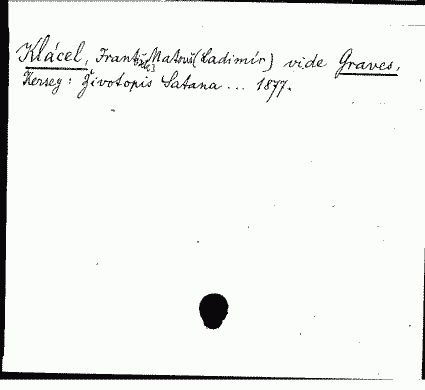 Klácel, Frant. Matouš (Ladimír) vide Graves,
Kersey: Životopis Satana ... 1877.